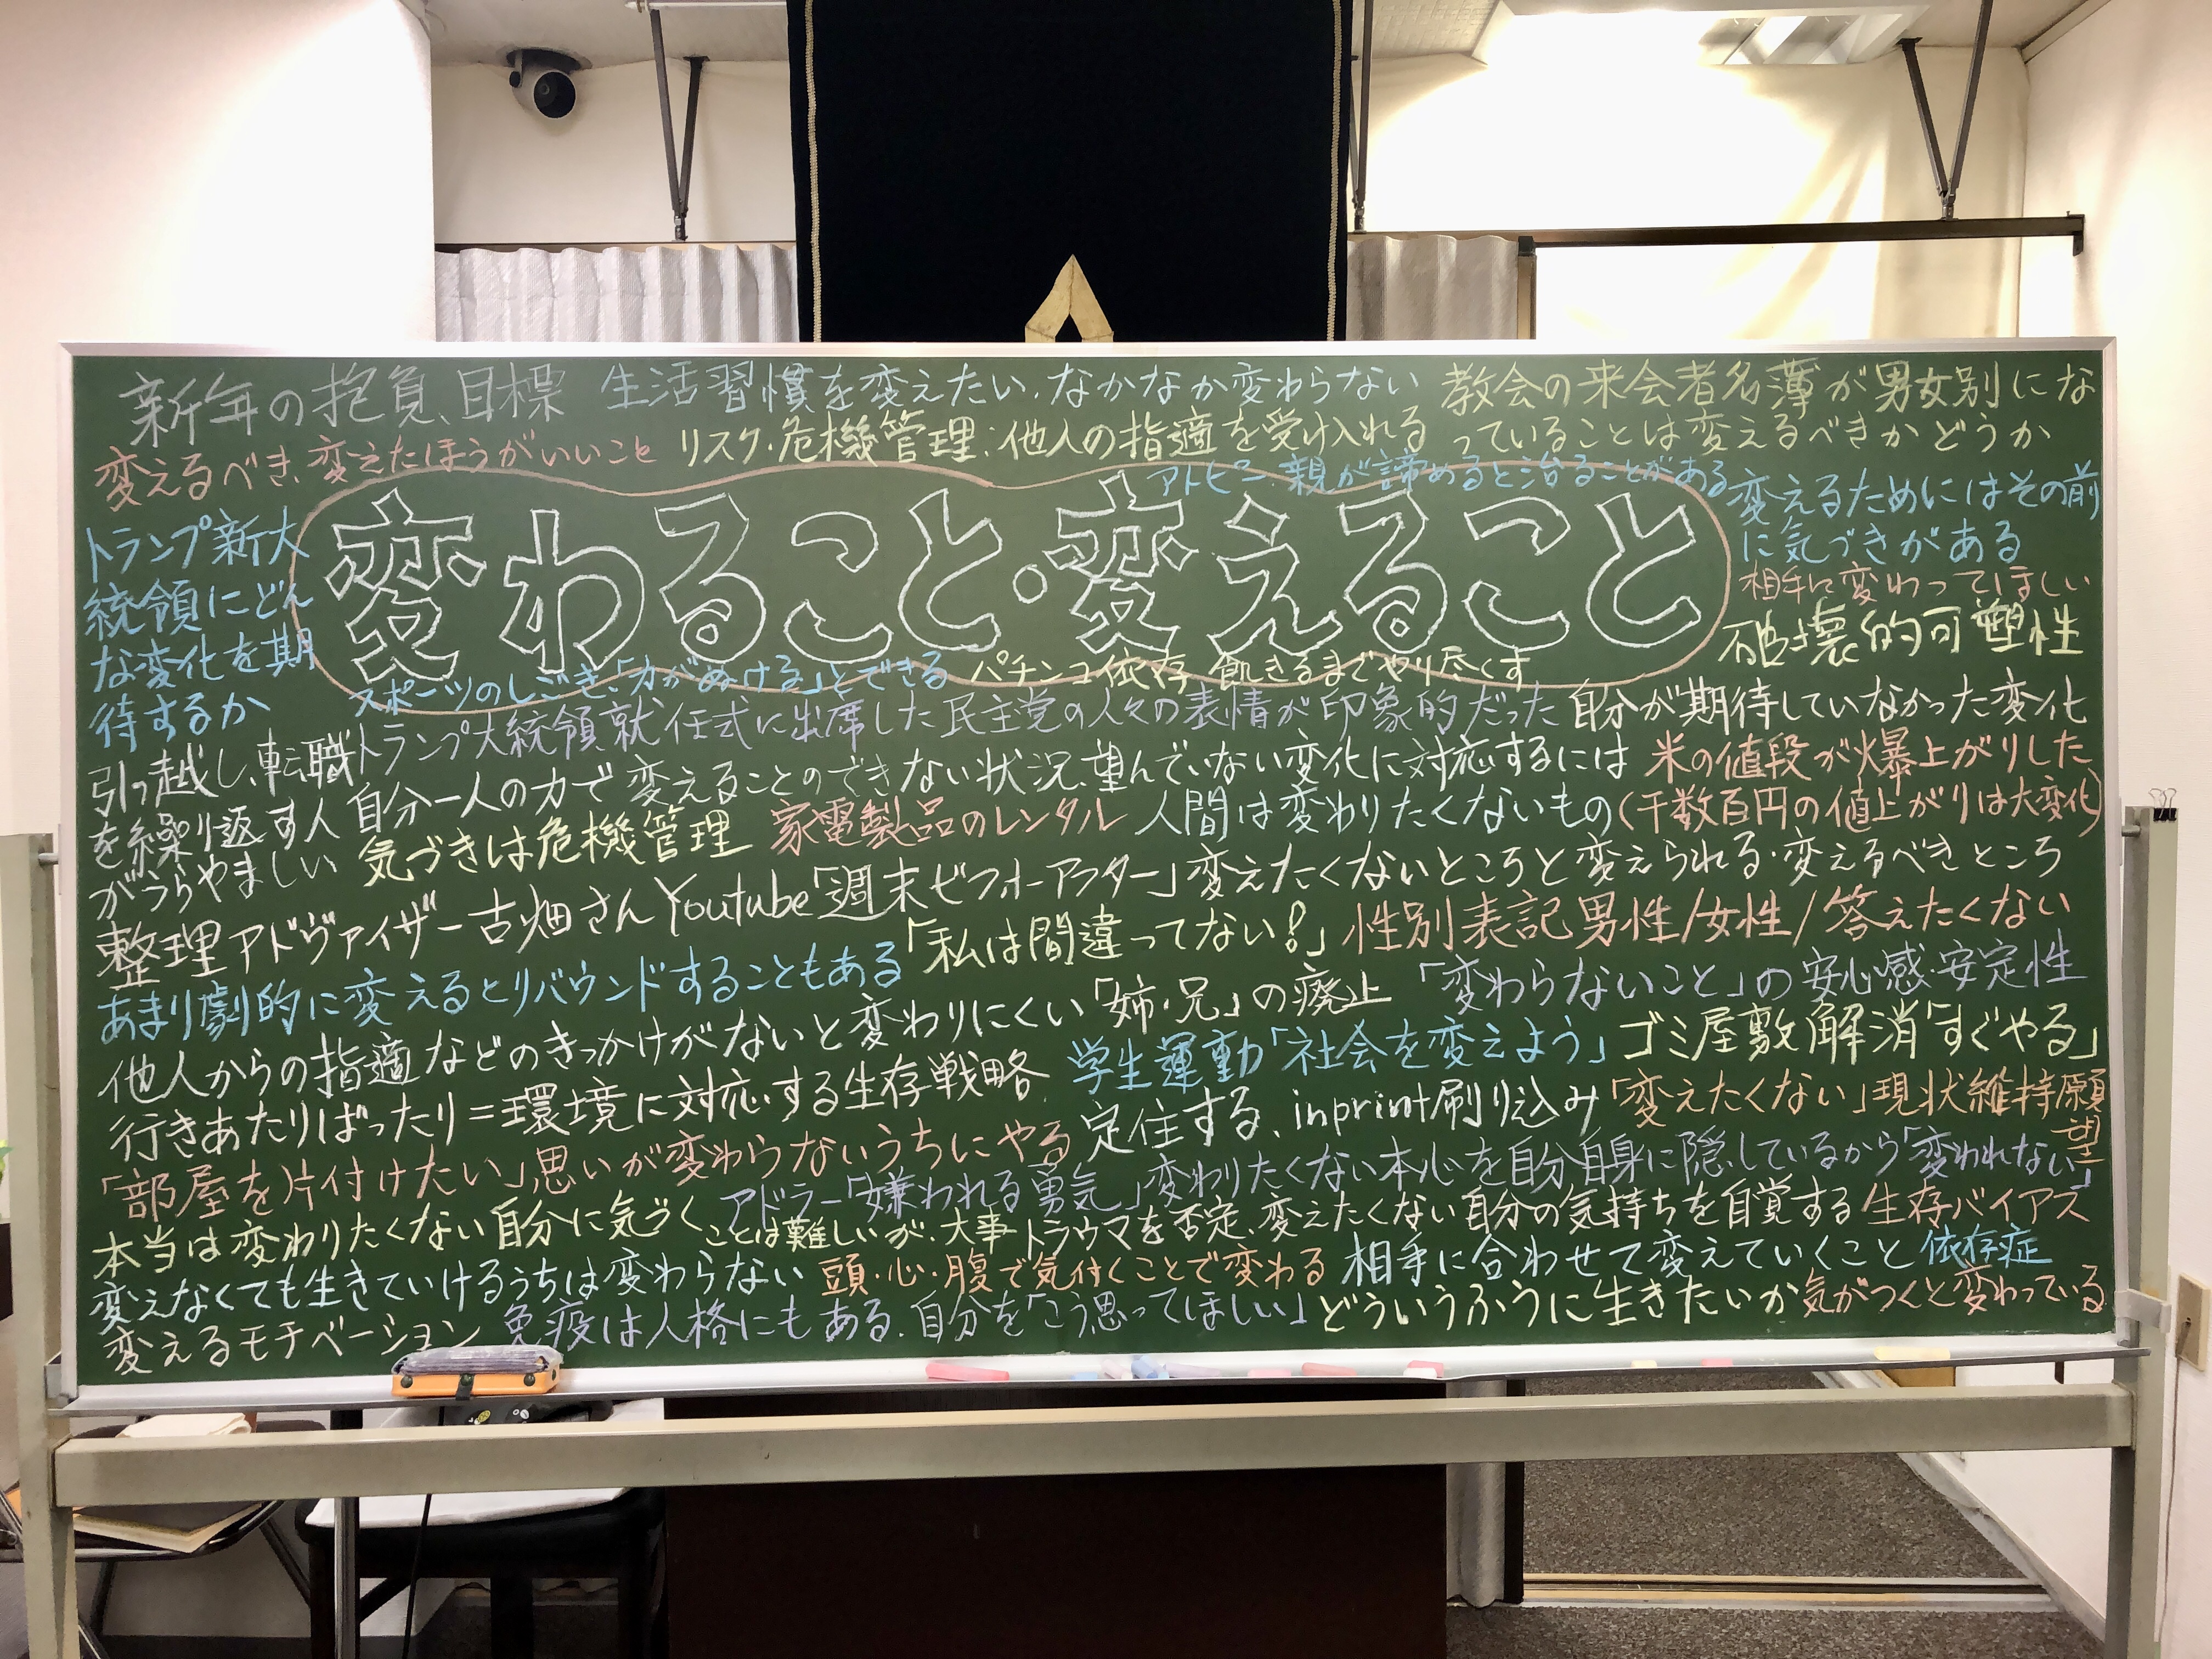 新年の抱負、目標 生活習慣を変えたい、なかなか変わらない 教会の来会者名薄が男女別にな
っていることは変えるべきかどうか
変えるべき、変えたほうがいいこと リスク・危機管理:他人の指適を受け入れる
アトピー、親が諦めると治ることがある
変えるためにはその前
に気づきがある
トランプ新大
統領にどん
な変化を期
待するか
変わること・変えること
相手に変わってほしい
破壊的可塑性
スポーツのしごき、「力がぬける」とできる パチンコ依存 飽きるまでやり尽くす
トランプ大統領就任式に出席した民主党の人々の表情が印象的だった 自分が期待していなかった変化
引っ越し、転職
を繰り返す人
がうらやましい
自分一人の力で変えることのできない状況、望んでいない変化に対応するには 米の値段が爆上がりした
(千数百円の値上がりは大変化)
気づきは危機管理 家電製品のレンタル 人間は変わりたくないもの
整理アドヴァイザー古畑さんYoutube「週末ビフォーアフター」変えたくないところと変えられる・変えるべきところ
あまり劇的に変えるとリバウンドすることもある 「私は間違ってない!」 性別表記男性/女性/答えたくない
他人からの指適などのきっかけがないと変わりにくい 「姉・兄」の廃止 「変わらないこと」の安心感・安定性
行きあたりばったり=環境に対応する生存戦略 学生運動「社会を変えよう」 ゴミ屋敷解消「すぐやる」
「部屋を片付けたい」思いが変わらないうちにやる 定住する、inprint刷り込み 「変えたくない」現状維持願望
アドラー「嫌われる勇気」変わりたくない本心を自分自身に隠しているから「変われない」
本当は変わりたくない自分に気づくことは難しいが、大事 トラウマを否定、変えたくない自分の気持ちを自覚する 生存バイアス
変えなくても生きていけるうちは変わらない 頭・心・腹で気付くことで変わる 相手に合わせて変えていくこと 依存症
変えるモチベーション 免疫は人格にもある、自分を「こう思ってほしい」 どういうふうに生きたいか 気がつくと変わっている